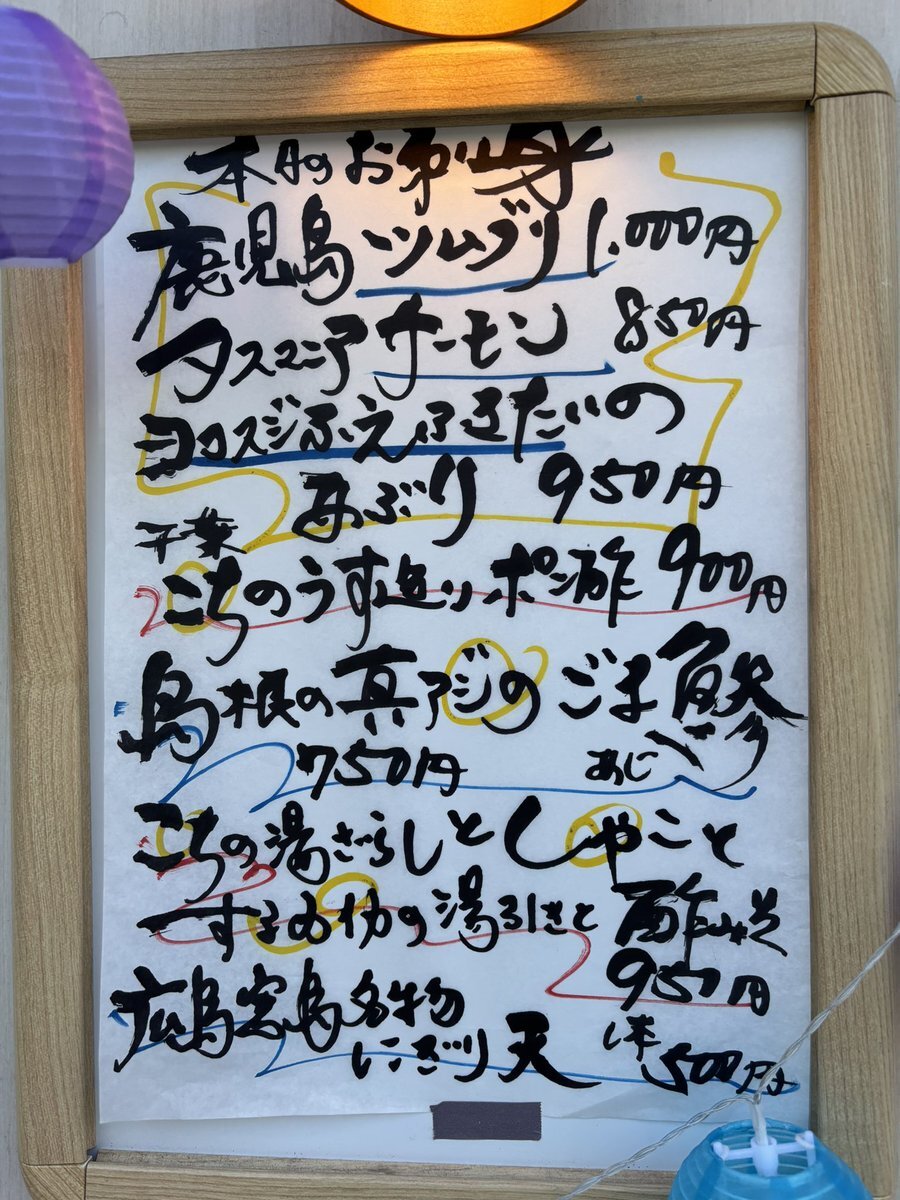 本日のお刺身
鹿児島 ツムブリ 1.000円
タスマニア サーモン 850円
ヨコスジふえふきだいの
あぶり 950円
千葉
こちのうす造り ポン酢 900円
島根の真アジの ごま鯵
750円 あじ
こちの湯ざらしと しゃこと
するめイカの湯引きと 酢
950円
広島宮島名物
にぎり天 1本 500円